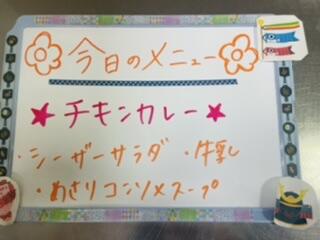 今日のメニュー
★チキンカレー★
・シーザーサラダ ・牛乳
・あさりコンソメスープ